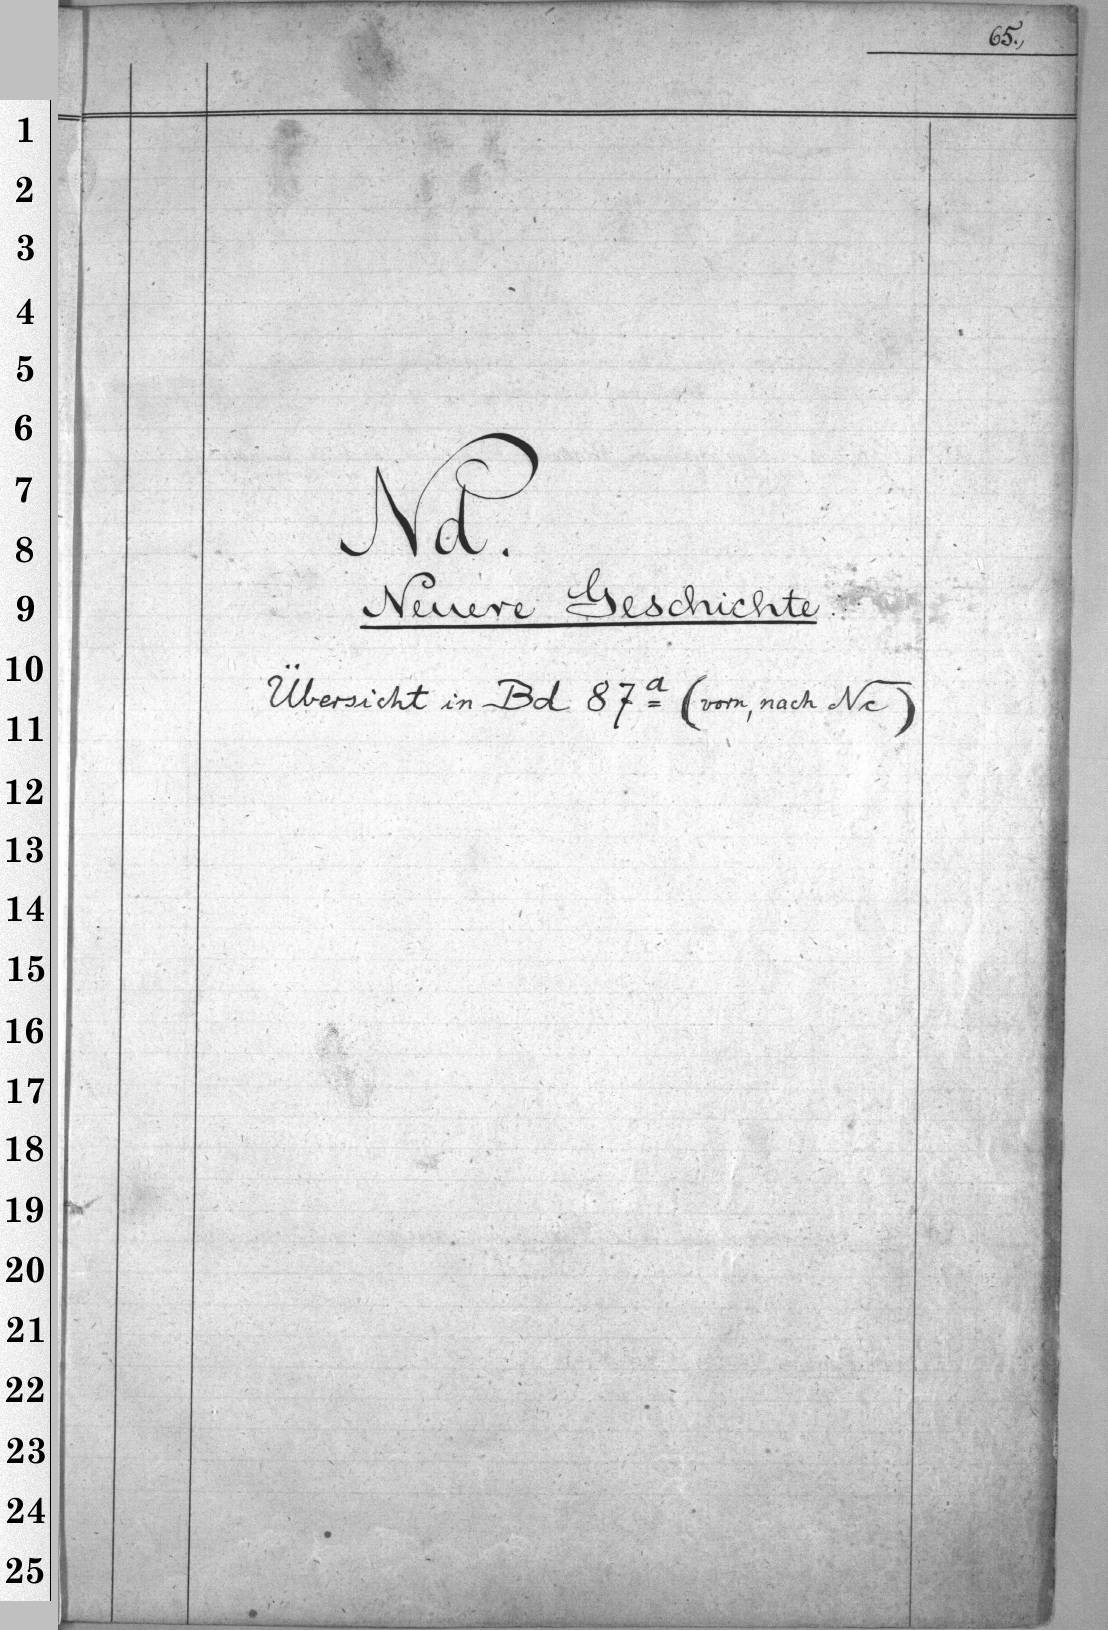 65.,
1
2
3
4
5
6
7
8
9
10
11
12
13
14
15
16
17
18
19
20
21
22
23
24
25
Nd.
Neuere Geschichte.
Übersicht in Bd 87a (vorn, nach Nc)